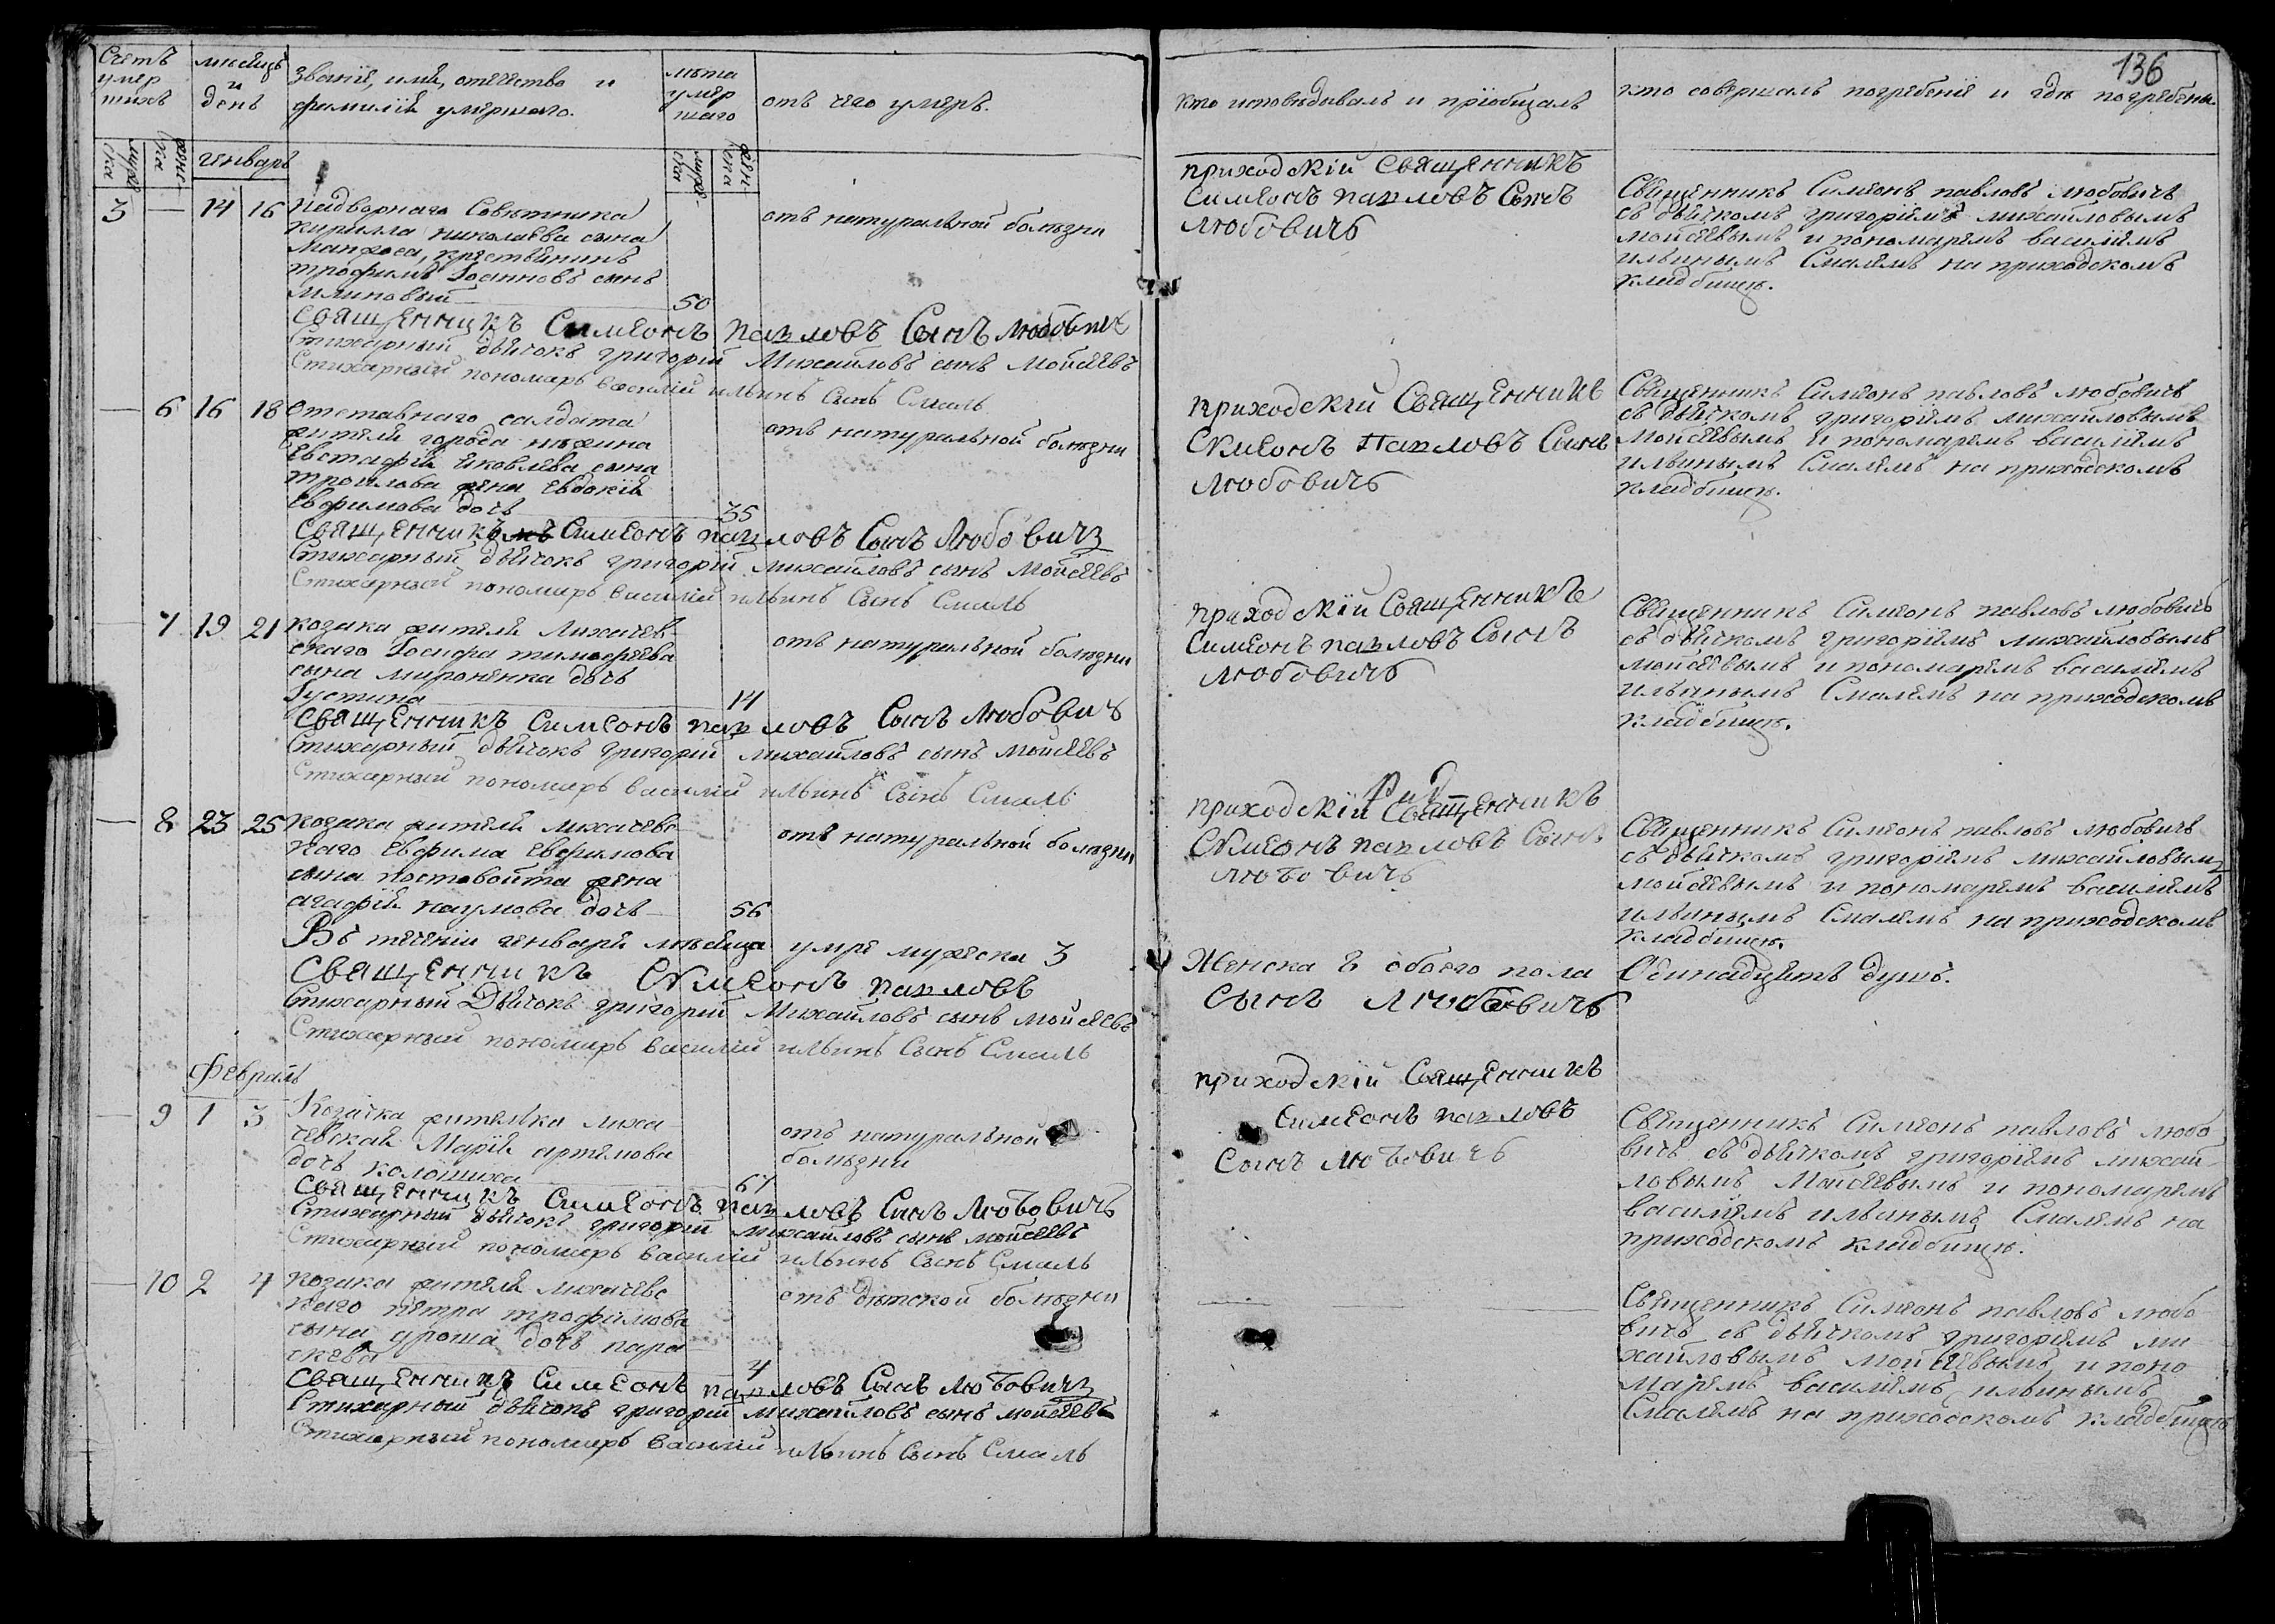 136
Счетъ умершихъ
мѣсяцъ и день
званіе, имя, отечество и фамилія умершаго.
лѣта умершаго
отъ чего умеръ.
кто исповѣдывалъ и пріобщалъ
кто совершалъ погребеніе и гдѣ погребены.
мужеска
женска
генварь
мужеска
женска
3 — 14 16
Надворнаго Совѣтника
Кирилла николаева сына
трофимъ Іоанновъ сынъ
Млиновый
50
отъ натуральной болѣзни
приходскій Священникъ
Симеонъ павловъ Сынъ
Любовичъ
Священникъ Симеонъ павловъ любовичъ
съ дьячкомъ григоріемъ михайловымъ
мойсеевымъ и пономаремъ василіемъ
ильинымъ Смалемъ на приходскомъ
кладбищѣ.
Священникъ Симеонъ павловъ Сынъ Любовичъ
Стихарный дьячокъ григорій Михайловъ сынъ Мойсеевъ
Стихарный пономарь василій ильинъ Сынъ Смаль
— 6 16 18
Отставнаго салдата
жителя города нѣжина
Евстафія яковлева сына
жена Евдокія
Ефимова дочь
35
отъ натуральной болѣзни
приходскій Священникъ
Симеонъ Павловъ Сынъ
Любовичъ
Священникъ Симеонъ павловъ любовичъ
съ дьячкомъ григоріемъ михайловымъ
мойсеевымъ и пономаремъ василіемъ
ильинымъ Смалемъ на приходскомъ
кладбищѣ.
Священникъ Симеонъ павловъ Сынъ Любовичъ
Стихарный дьячокъ григорій михайловъ сынъ Мойсеевъ
Стихарный пономарь василій ильинъ Сынъ Смаль
— 7 19 21
козака жителя Лихачев-
скаго Іосифа тимофеева
сына мироненка дочь
Іустина
14
отъ натуральной болѣзни
приходскій Священникъ
Симеонъ павловъ Сынъ
Любовичъ
Священникъ Симеонъ павловъ любовичъ
съ дьячкомъ григоріемъ михайловымъ
мойсеевымъ и пономаремъ василіемъ
ильинымъ Смалемъ на приходскомъ
кладбищѣ.
Священникъ Симеонъ павловъ Сынъ Любовичъ
Стихарный дьячокъ григорій михайловъ сынъ мойсеевъ
Стихарный пономарь василій ильинъ Сынъ Смаль
— 8 23 25
козака жителя лихачевс-
каго Ефима Ефимова
сына постовойта жена
агафія наумова дочь
56
отъ натуральной болѣзни
приходскій Священникъ
Симеонъ павловъ Сынъ
Любовичъ
Священникъ Симеонъ павловъ любовичъ
съ дьячкомъ григоріемъ михайловымъ
мойсеевымъ и пономаремъ василіемъ
ильинымъ Смалемъ на приходскомъ
кладбищѣ.
Въ теченіи генваря мѣсяца умре мужеска 3 Женска 8 обоего пола Одинадцять душъ.
Священникъ Симеонъ павловъ сынъ Любовичъ
Стихарный Дьячокъ григорій Михайловъ сынъ Мойсеевъ
Стихарный пономарь василій ильинъ Сынъ Смаль
Февраль
— 9 1 3
Козачка жителька лиха-
чевская Марія артемова
дочь
67
отъ натуральной
болѣзни
приходскій Священникъ
Симеонъ павловъ
Сынъ Любовичъ
Священникъ Симеонъ павловъ любо-
вичъ съ дьячкомъ григоріемъ михай-
ловымъ Мойсеевымъ и пономаремъ
василіемъ ильинымъ Смалемъ на
приходскомъ кладбищѣ.
Священникъ Симеонъ павловъ Сынъ Любовичъ
Стихарный дьячокъ григорій михайловъ сынъ мойсеевъ
Стихарный пономарь василій ильинъ Сынъ Смаль
— 10 2 4
козака жителя лихачевс-
каго петра трофимова
сына дочь пара-
скева
4
отъ дѣтской болѣзни
Священникъ Симеонъ павловъ любо-
вичъ съ дьячкомъ григоріемъ ми-
хайловымъ мойсеевымъ и поно-
маремъ василіемъ ильинымъ
Смалемъ на приходскомъ кладбищѣ
Священникъ Симеонъ павловъ Сынъ Любовичъ
Стихарный дьячокъ григорій михайловъ сынъ мойсеевъ
Стихарный пономарь василій ильинъ Сынъ Смаль